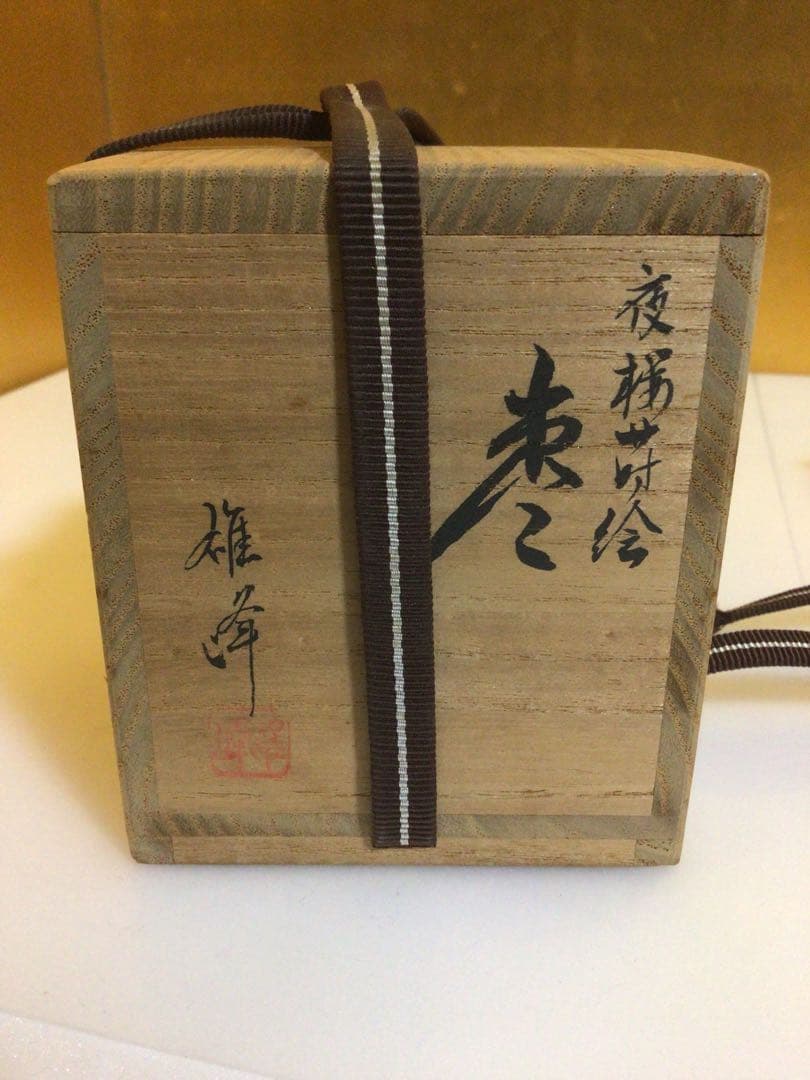 夜桜蒔絵
棗
雄峰